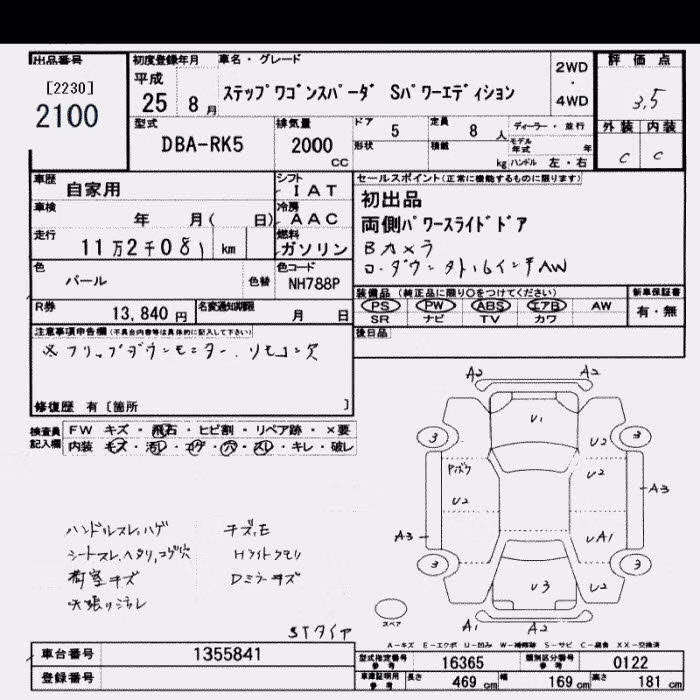 出品番号
[2230]
2100
初度登録年月
平成
25 8 月
車名・グレード
ステップワゴンスパーダ Sパワーエディション
2WD
・
4WD
評価点
3.5
外装 内装
C C
型式
DBA-RK5
排気量
2000
cc
ドア 5
形状
定員 8 人
積載 kg
ディーラー・並行
モデル年式 年
ハンドル 左・右
車歴 自家用
シフト IAT
車検 年 月( 日)
冷房 AAC
走行 11万2千081 km
燃料 ガソリン
色 パール 色替
色コード NH788P
R券 13,840 円
名変通知期限 月 日
セールスポイント(正常に機能するものに限ります)
初出品
両側パワースライドドア
Bカメラ
ローダウン 16インチAW
装備品 (純正品に限り○をつけてください)
PS PW ABS エアB AW
SR ナビ TV カワ
新車保証書
有・無
後日品
注意事項申告欄(不具合内容等は具体的に記入して下さい)
※フリップダウンモニター、リモコン欠
修復歴 有〔箇所 〕
検査員記入欄
FW キズ・飛石・ヒビ割・リペア跡・×要
内装 キズ・汚レ・コゲ・穴・スレ・キレ・破レ
A2 A2
U1
3 3
U2
Pボウ U2
U2
A3
A3
UA1
3 3
U3 U2
スペア
A1 A2
ハンドルスレ、ハゲ
シートスレ、ヘタリ、コゲ穴
荷室キズ
キズ、E
Hライトクモリ
Dミラーキズ
STタイヤ
A-キズ E-エクボ U-凹み W-補修跡 S-サビ C-腐食 XX-交換済
車台番号 1355841
登録番号
型式指定番号 参考 16365
類別区分番号 参考 0122
車庫証明用 参考
長さ 469 cm 幅 169 cm 高さ 181 cm